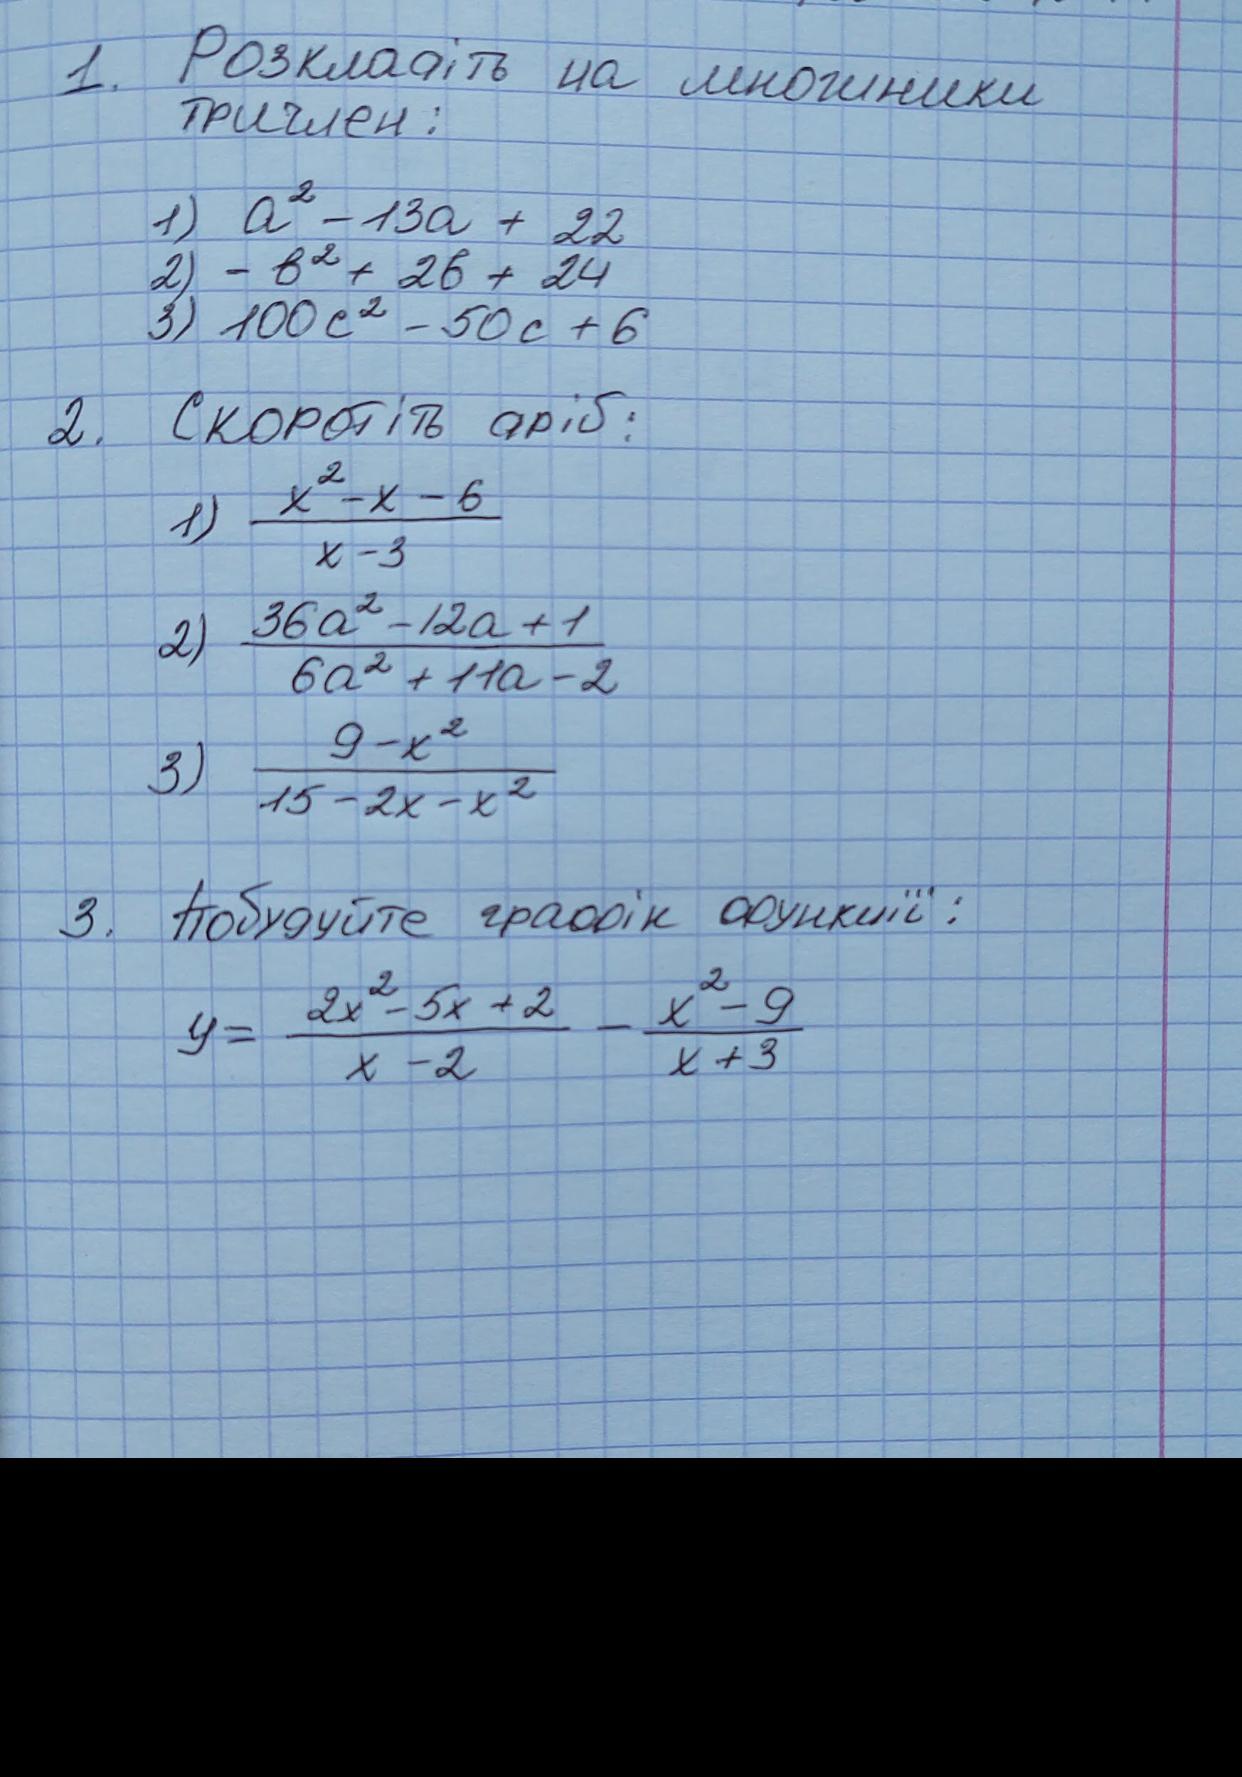 1. Розкладіть на множники
тричлен:
1) a² - 13a + 22
2) - b² + 2b + 24
3) 100c² - 50c + 6
2. Скоротіть дріб:
1) x² - x - 6
x - 3
2) 36a² - 12a + 1
6a² + 11a - 2
3) 9 - x²
15 - 2x - x²
3. Побудуйте графік функції:
y = 2x² - 5x + 2 / x - 2 - x² - 9 / x + 3